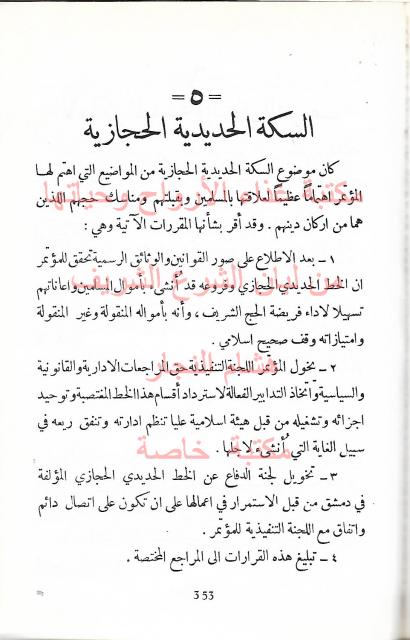 = ٥ =
السكة الحديدية الحجازية
كان موضوع السكة الحديدية الحجازية من المواضيع التي اهتم لهـا
المؤتمر اهتماماً عظيماً لعلاقتها بالمسلمين وبقبلتهم ومناسك حجهم اللذين
هما من اركان دينهم . وقد أقر بشأنها المقررات الآتية وهي :
١ ـ بعد الاطلاع على صور القوانين والوثائق الرسمية تحقق للمؤتمر
ان الخط الحديدي الحجازي وفروعه قد أُنشىء بأموال المسلمين واعاناتهم
تسهيلا لاداء فريضة الحج الشريف ، وأنه بأمواله المنقولة وغير المنقولة
وامتيازاته وقف صحيح اسلامي .
٢ ـ يخول المؤتمر اللجنة التنفيذية حق المراجعات الادارية والقانونية
والسياسية واتخاذ التدابير الفعالة لاسترداد أقسام هذا الخط المغتصبة وتوحيد
اجزائه وتشغيله من قبل هيئة اسلامية عليا تنظم ادارته وتنفق ريعه في
سبيل الغاية التي أُنشىء لاجلها .
٣ ـ تخويل لجنة الدفاع عن الخط الحديدي الحجازي المؤلفة
في دمشق من قبل الاستمرار في اعمالها على ان تكون على اتصال دائم
واتفاق مع اللجنة التنفيذية للمؤتمر .
٤ ـ تبليغ هذه القرارات الى المراجع المختصة .
353
مكتبة خاصة